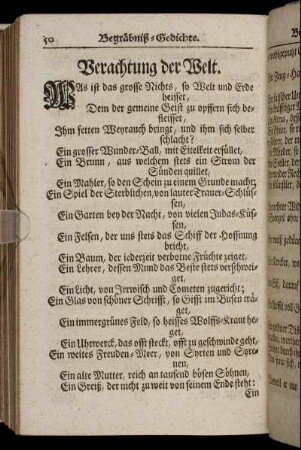 50 Begräbniß-Gedichte.
Verachtung der Welt.
WAs ist das grosse Nichts, so Welt und Erde
heisset,
Dem der gemeine Geist zu opffern sich be-
fleisset,
Ihm fetten Weyrauch bringt, und ihm sich selber
schlacht?
Ein grosser Wunder-Ball, mit Eitelkeit erfüllet,
Ein Brunn, aus welchem stets ein Strom der
Sünden quillet,
Ein Mahler, so den Schein zu einem Grunde macht;
Ein Spiel der Sterblichen, von lauter Trauer-Schlüs-
sen,
Ein Garten bey der Nacht, von vielen Judas-Küs-
sen,
Ein Felsen, der uns stets das Schiff der Hoffnung
bricht,
Ein Baum, der iederzeit verbothne Früchte zeiget,
Ein Lehrer, dessen Mund das Beste stets verschwei-
get,
Ein Licht, von Irrwisch und Cometen zugericht;
Ein Glas von schöner Schrifft, so Gifft im Busen trä-
get,
Ein immergrünes Feld, so heisses Wolffs-Kraut he-
get,
Ein Uhrwerck, das offt steckt, offt zu geschwinde geht,
Ein weites Freuden-Meer, von Syrten und Syre-
nen,
Ein alte Mutter, reich an tausend bösen Söhnen,
Ein Greiß, der nicht zu weit von seinem Ende steht:
Ein